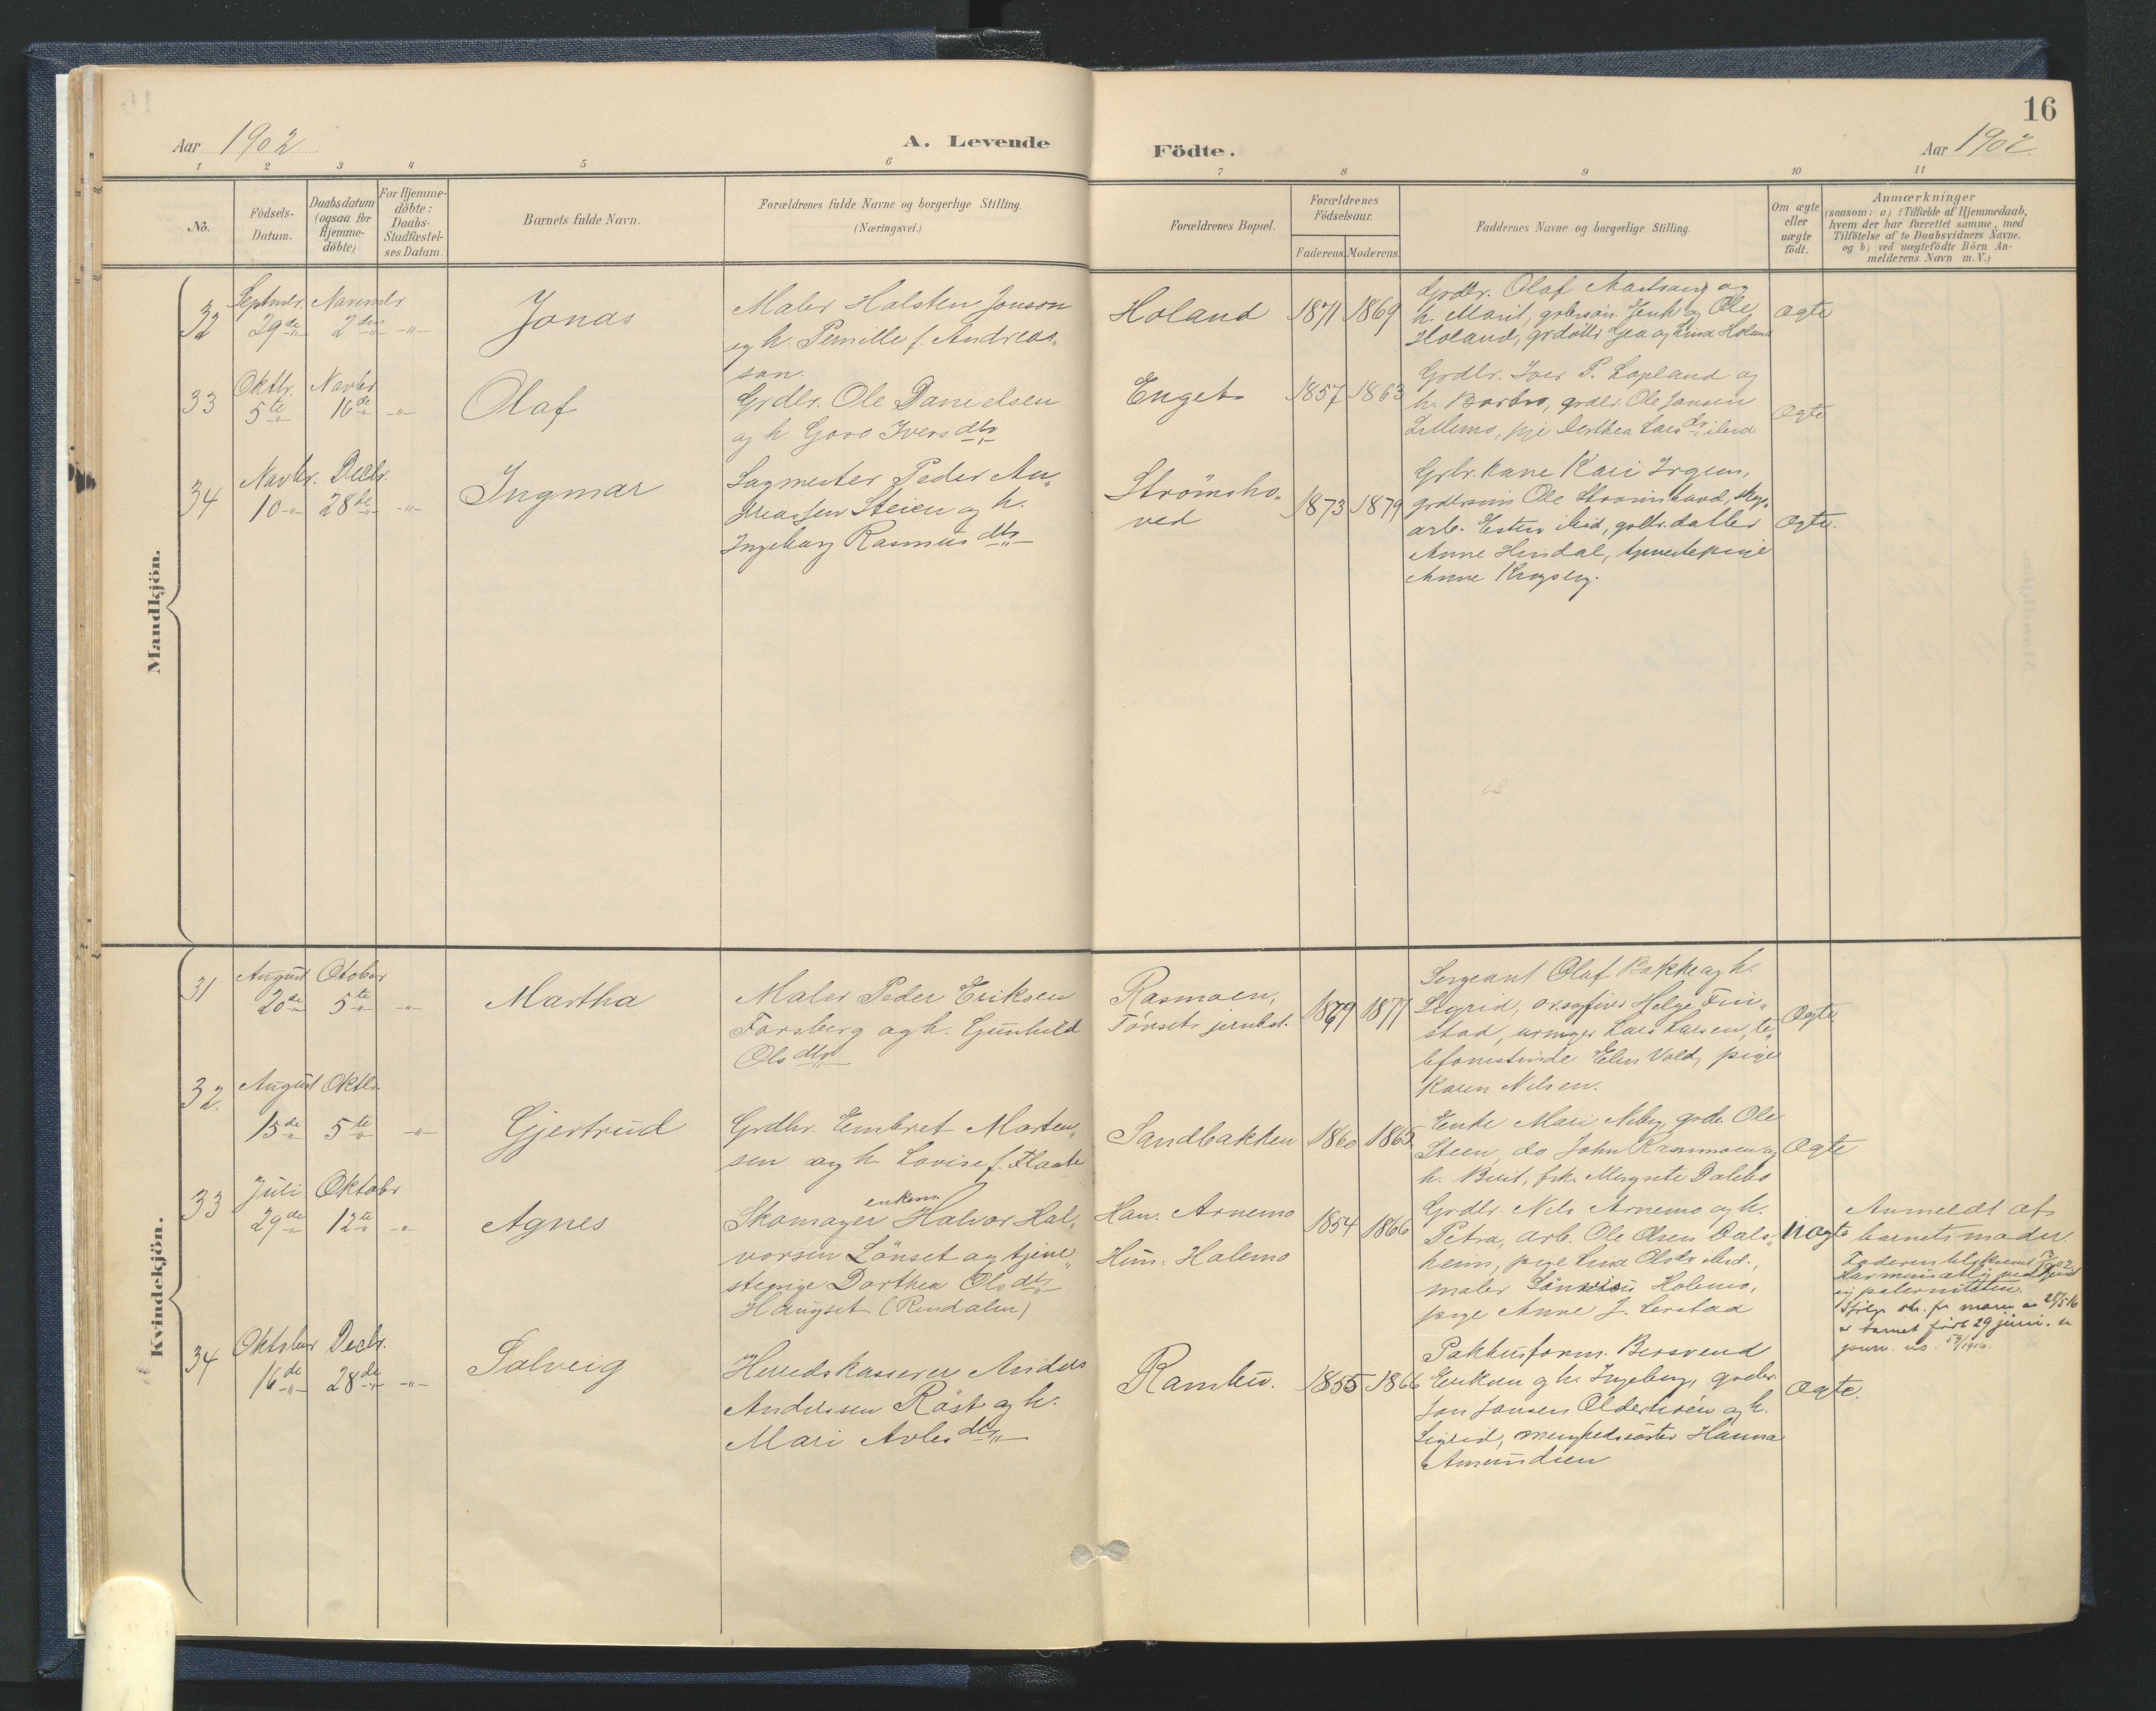 16
Aar 1902
A. Levende
Födte.
Aar 1902.
1 2 3 4 5 6 7 8 9 10 11
No.
Födsels-
Datum.
Daabsdatum
(ogsaa for
Hjemme-
döbte)
For Hjemme-
döbte:
Daabs-
Stadfæstel-
ses Datum.
Barnets fulde Navn.
Forældrenes fulde Navne og borgerlige Stilling.
(Næringsvei.)
Forældrenes Bopæl.
Forældrenes
Födselsaar.
Faderens. Moderens.
Faddernes Navne og borgerlige Stilling.
Om ægte
eller
uægte
födt.
Anmærkninger
(saasom: a) i Tilfælde af Hjemmedaab,
hvem der har forrettet samme, med
Tilföielse af to Daabsvidners Navne.
og b) ved uægtefödte Börn An-
melderens Navn m.V.)
Mandkjön.
32
Septmbr. Novembr
29de 2den -"-
Jonas
Maler Halsten Jonson
og h. Pernille f. Andreas„
son.
Holand
1871 1869
Grdbr. Olaf og
h. Marit, Ole
Holand,
Ægte
33
Oktbr. Novbr
5te 16de -"-
Olaf
Grdbr. Ole Danielsen
og h. Goro Ivers dtr
Enget
1857 1863
Grdbr. Iver P. Lapland og
h. Barbro, grdbr. Ole Jonsen
Lillemo, ibid
Ægte
34
Novbr. Decbr.
10 28de -"-
Ingmar
Sagmester Peder An„
dreassen Steien og h.
Ingeborg Rasmus dtr
Strömsho„
ved
1873 1879
Grbr.kone Kari
Ole
arb. Esten ibid, grdbr.datter
Anne Hindal, tjenestepige
Anne
Ægte.
Kvindekjön.
31
August Otober
20de 5te -"-
Martha
Maler Peder Eriksen
Forsberg og h. Gunhild
Ols dtr
Rasmoen,
Tönset jernbst.
1879 1877
Sergeant Olaf Bakke og h.
Sigrid, Helge Fin„
stad, Lars Larsen, te„
lefonistinde Elen Vold, pige
Karen Nilsen.
Ægte
32.
August Oktbr.
15de 5te -"-
Gjertrud
Grdbr. Embret Morten„
sen og h. Lovise f. Flaate
Sandbakken
1860 1865
Enke Mari grdbr. Ole
Steen, do John Rasmoen og
h. Berit, frk. Margrete Dalebo
Ægte
33
Juli Oktobr
29de 12te -"-
Agnes
enkem.
Skomager Halvor Hal„
vorsen Lönset og tjene„
stepige Dorthea Ols dtr
Haugset (Rendalen)
Han. Arnemo
Hun. Holemo
1854 1866
Grdbr. Nils Arnemo og h.
Petra, arb. Ole Olsen Dals„
heim, pige Lina Olsdtr ibid.,
maler Holemo,
pige Anne J.
Uægte
Anmeldt af
barnets moder.
paterniteten.
er barnet födt 29 juni.
34
Oktober Decbr.
16de 28de -"-
Solveig
Herredskasserer Anders
Anderssen Röst og h.
Mari dtr
Rambu.
1855 1866
Pakhusform. Bersvend
Eriksen og h. Ingeborg, grdbr.
Jon Jonsen og h.
Sigrid, Hanna
Amundsen
Ægte.